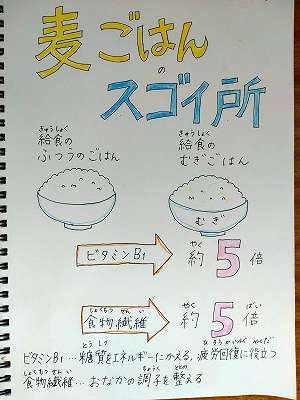 麦ごはん
の
スゴイ所
きゅうしょく
給食の
ふつうのごはん
きゅうしょく
給食の
むぎごはん
むぎ
ビタミンB1
やく
約5倍
しょくもつせんい
食物繊維
やく ばい
約5倍
とうしつ ひろうかいふく やくだ
ビタミンB1…糖質をエネルギーにかえる,疲労回復に役立つ
しょくもつせんい ちょうし ととの
食物繊維…おなかの調子を整える